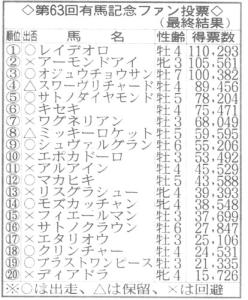 ◇第63回有馬記念ファン投票◇
(最終結果)
順位 出否 馬名 性齢 得票数
① ○ レイデオロ 牡4 110,293
② × アーモンドアイ 牝3 105,561
③ ○ オジュウチョウサン 牡7 100,382
④ △ スワーヴリチャード 牡4 89,456
⑤ ○ キセキ 牡4 75,471
⑤ ○ サトノダイヤモンド 牡5 78,204
⑦ × ワグネリアン 牡3 68,049
⑧ ○ ミッキーロケット 牡5 59,595
⑨ ○ シュヴァルグラン 牡6 55,206
⑩ × エポカドーロ 牡3 53,492
⑪ × アルアイン 牡4 45,529
⑫ × マカヒキ 牡5 43,588
⑬ × リスグラシュー 牝4 39,393
⑭ ○ モズカッチャン 牝4 38,548
⑮ × フィエールマン 牡3 37,699
⑯ × サトノクラウン 牡6 27,847
⑰ × エタリオウ 牡3 25,106
⑱ ○ クリンチャー 牡4 24,531
⑲ ○ ブラストワンピース 牡3 21,335
⑳ × ディアドラ 牝4 15,726
※○は出走、△は保留、×は回避